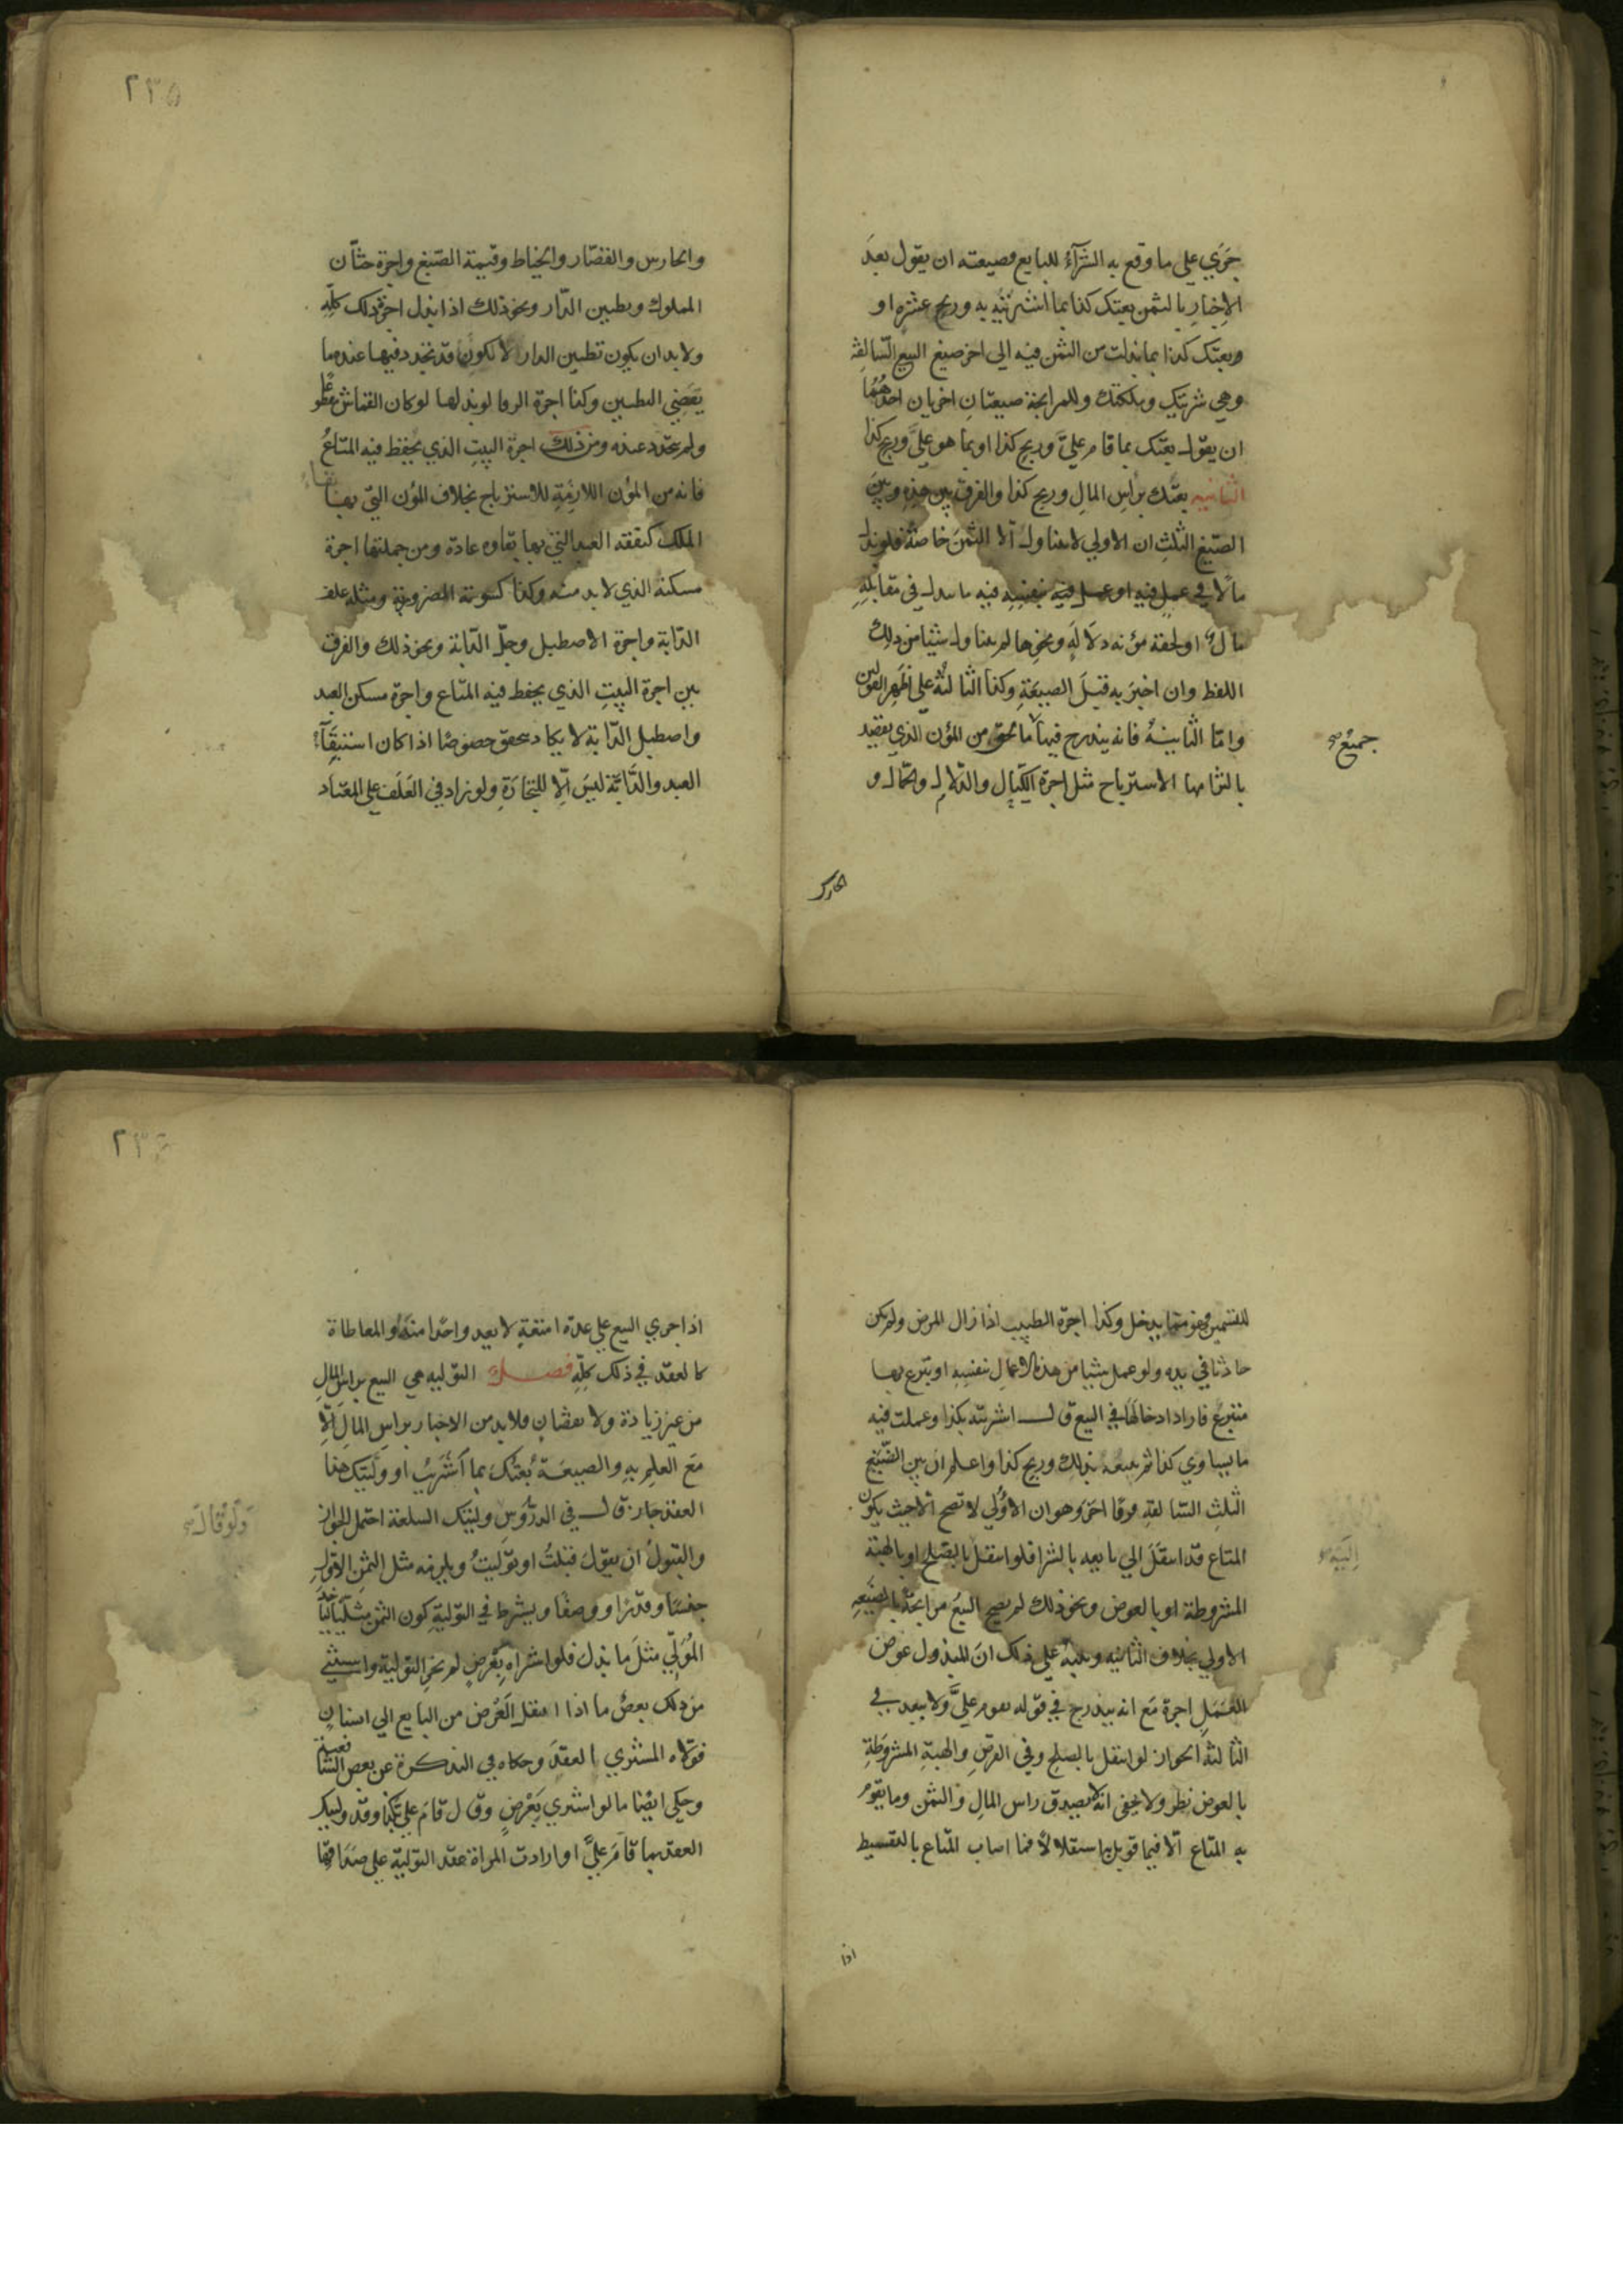 جري علي ما وقع به الشرآء للبايع وصيعته ان يقول بعد
الاخبار بالثمن بعتك كذا بما اشتريته به وربح عشرة او
وبعتك كذا بما بذلت من الثمن فيه الي اخر صيغ البيع السالفة
وهي شريتك وملكتك وللمرابحة صيغتان اخريان احدهما
ان يقول بعتك بما قام علي وربح كذا او بما هو علي وربح كذا
الثانيه بعتك براس المال وربح كذا والفرق بين هذه وبين
الصيغ الثلث ان الاولي لا يتناول الا الثمن خاصة فلو بذل
مالا في عمل فيه او عمل فيه بنفسه فيه ما بذل في مقابله
مال او لحقه مؤنه دلالة ونحوها لم يتناول شيا من ذلك
اللفظ وان اخبر به قبل الصيغة وكذا الثالثة علي اظهر القولين
واما الثانية فانه يندرج فيها ما لحق من المؤن الذي يقصد
جميع صح
بالتزامها الاسترباح مثل اجرة الكيال والدلال والحمال و
الحارس
٢٣٥
والحارس والقصار والخياط وقيمة الصبغ واجرة ختان
المملوك وتطيين الدار ونحو ذلك اذا بذل اجرة ذلك كله
ولا بد ان يكون تطيين الدار لا لكون قد تجدد فيها عنده ما
يقضي التطيين وكذا اجرة الرفا لو بذلها لو كان القماش مقطوعا
ولم يتجدد عنده ومن ذلك اجرة البيت الذي يحفظ فيه المتاع
فانه من المؤن اللازمة للاسترباح بخلاف المؤن التي بها بقاء
الملك كنفقة العبد التي بها بقاوه عادة ومن جملتها اجرة
مسكنه الذي لا بد منه وكذا كسوته الضرورية ومثله علف
الدابة واجرة الاصطبل وجل الدابة ونحو ذلك والفرق
بين اجرة البيت الذي يحفظ فيه المتاع واجرة مسكن العبد
واصطبل الدابة لا يكاد يتحقق خصوصا اذا كان استبقآء
العبد والدابة ليس الا للتجارة ولو زاد في العلف علي المعتاد
للتسمين ونحو منها يدخل وكذا اجرة الطبيب اذا زال المرض ولم يكن
حادثا في يده ولو عمل شيا من هذه الاعمال بنفسه او تبرع بها
متبرع فاراد ادخالها في البيع قال اشتريته بكذا وعملت فيه
ما يساوي كذا ثم يبيعه بذلك وربح كذا واعلم ان بين الصيغ
الثلث السالفة فرقا اخر وهو ان الاولي لا تصح الا حيث يكون
المتاع قد انتقل الي بايعه بالشرا فلو انتقل بالصلح او بالهبة
اليه صح
المشروطة او بالعوض ونحو ذلك لم يصح البيع مرابحة بالصيغه
الاولي بخلاف الثانيه وينبه علي ذلك ان للمبذول عوض
العمل اجرة مع انه يندرج في قوله تقوم علي ولا يبعد في
الثالثه الجواز لو انتقل بالصلح وفي القرض والهبة المشروطة
بالعوض نظر ولا يخفى انه لا يصدق راس المال والثمن وما يقوم
به المتاع الا فيما قوبل به استقلالا فما اصاب المتاع بالتقسيط
اذا
٢٣٦
اذا جري البيع علي عدة امتعة لا يعد واحدا منه والمعاطاة
كالعقد في ذلك كله فصل التوليه هي البيع براس المال
من غير زيادة ولا نقصان فلا بد من الاخبار براس المال الا
مع العلم به والصيغة بعتك بما اشتريت او وليتك هذا
العقد جاز قال في الدروس وليتك السلعة احتمل الجواز
ولو قال صح
والقبول ان يقول قبلت او توليت ويلزمه مثل الثمن الاول
جنسا وقدرا ووصفا ويشرط في التولية كون الثمن مثليا لياخذ
المولي مثل ما بذل فلو اشتراه بعرض لم تجز التولية واستثني
من ذلك بعض ما اذا انتقل العرض من البايع الي انسان
فولاه المشتري العقد وحكاه في التذكرة عن بعض الشافعية
وحكي ايضا ما لو اشتري بعرض وقال قام علي بكذا وقد وليتك
العقد بما قام علي او ارادت المراة عقد التولية علي صداقها